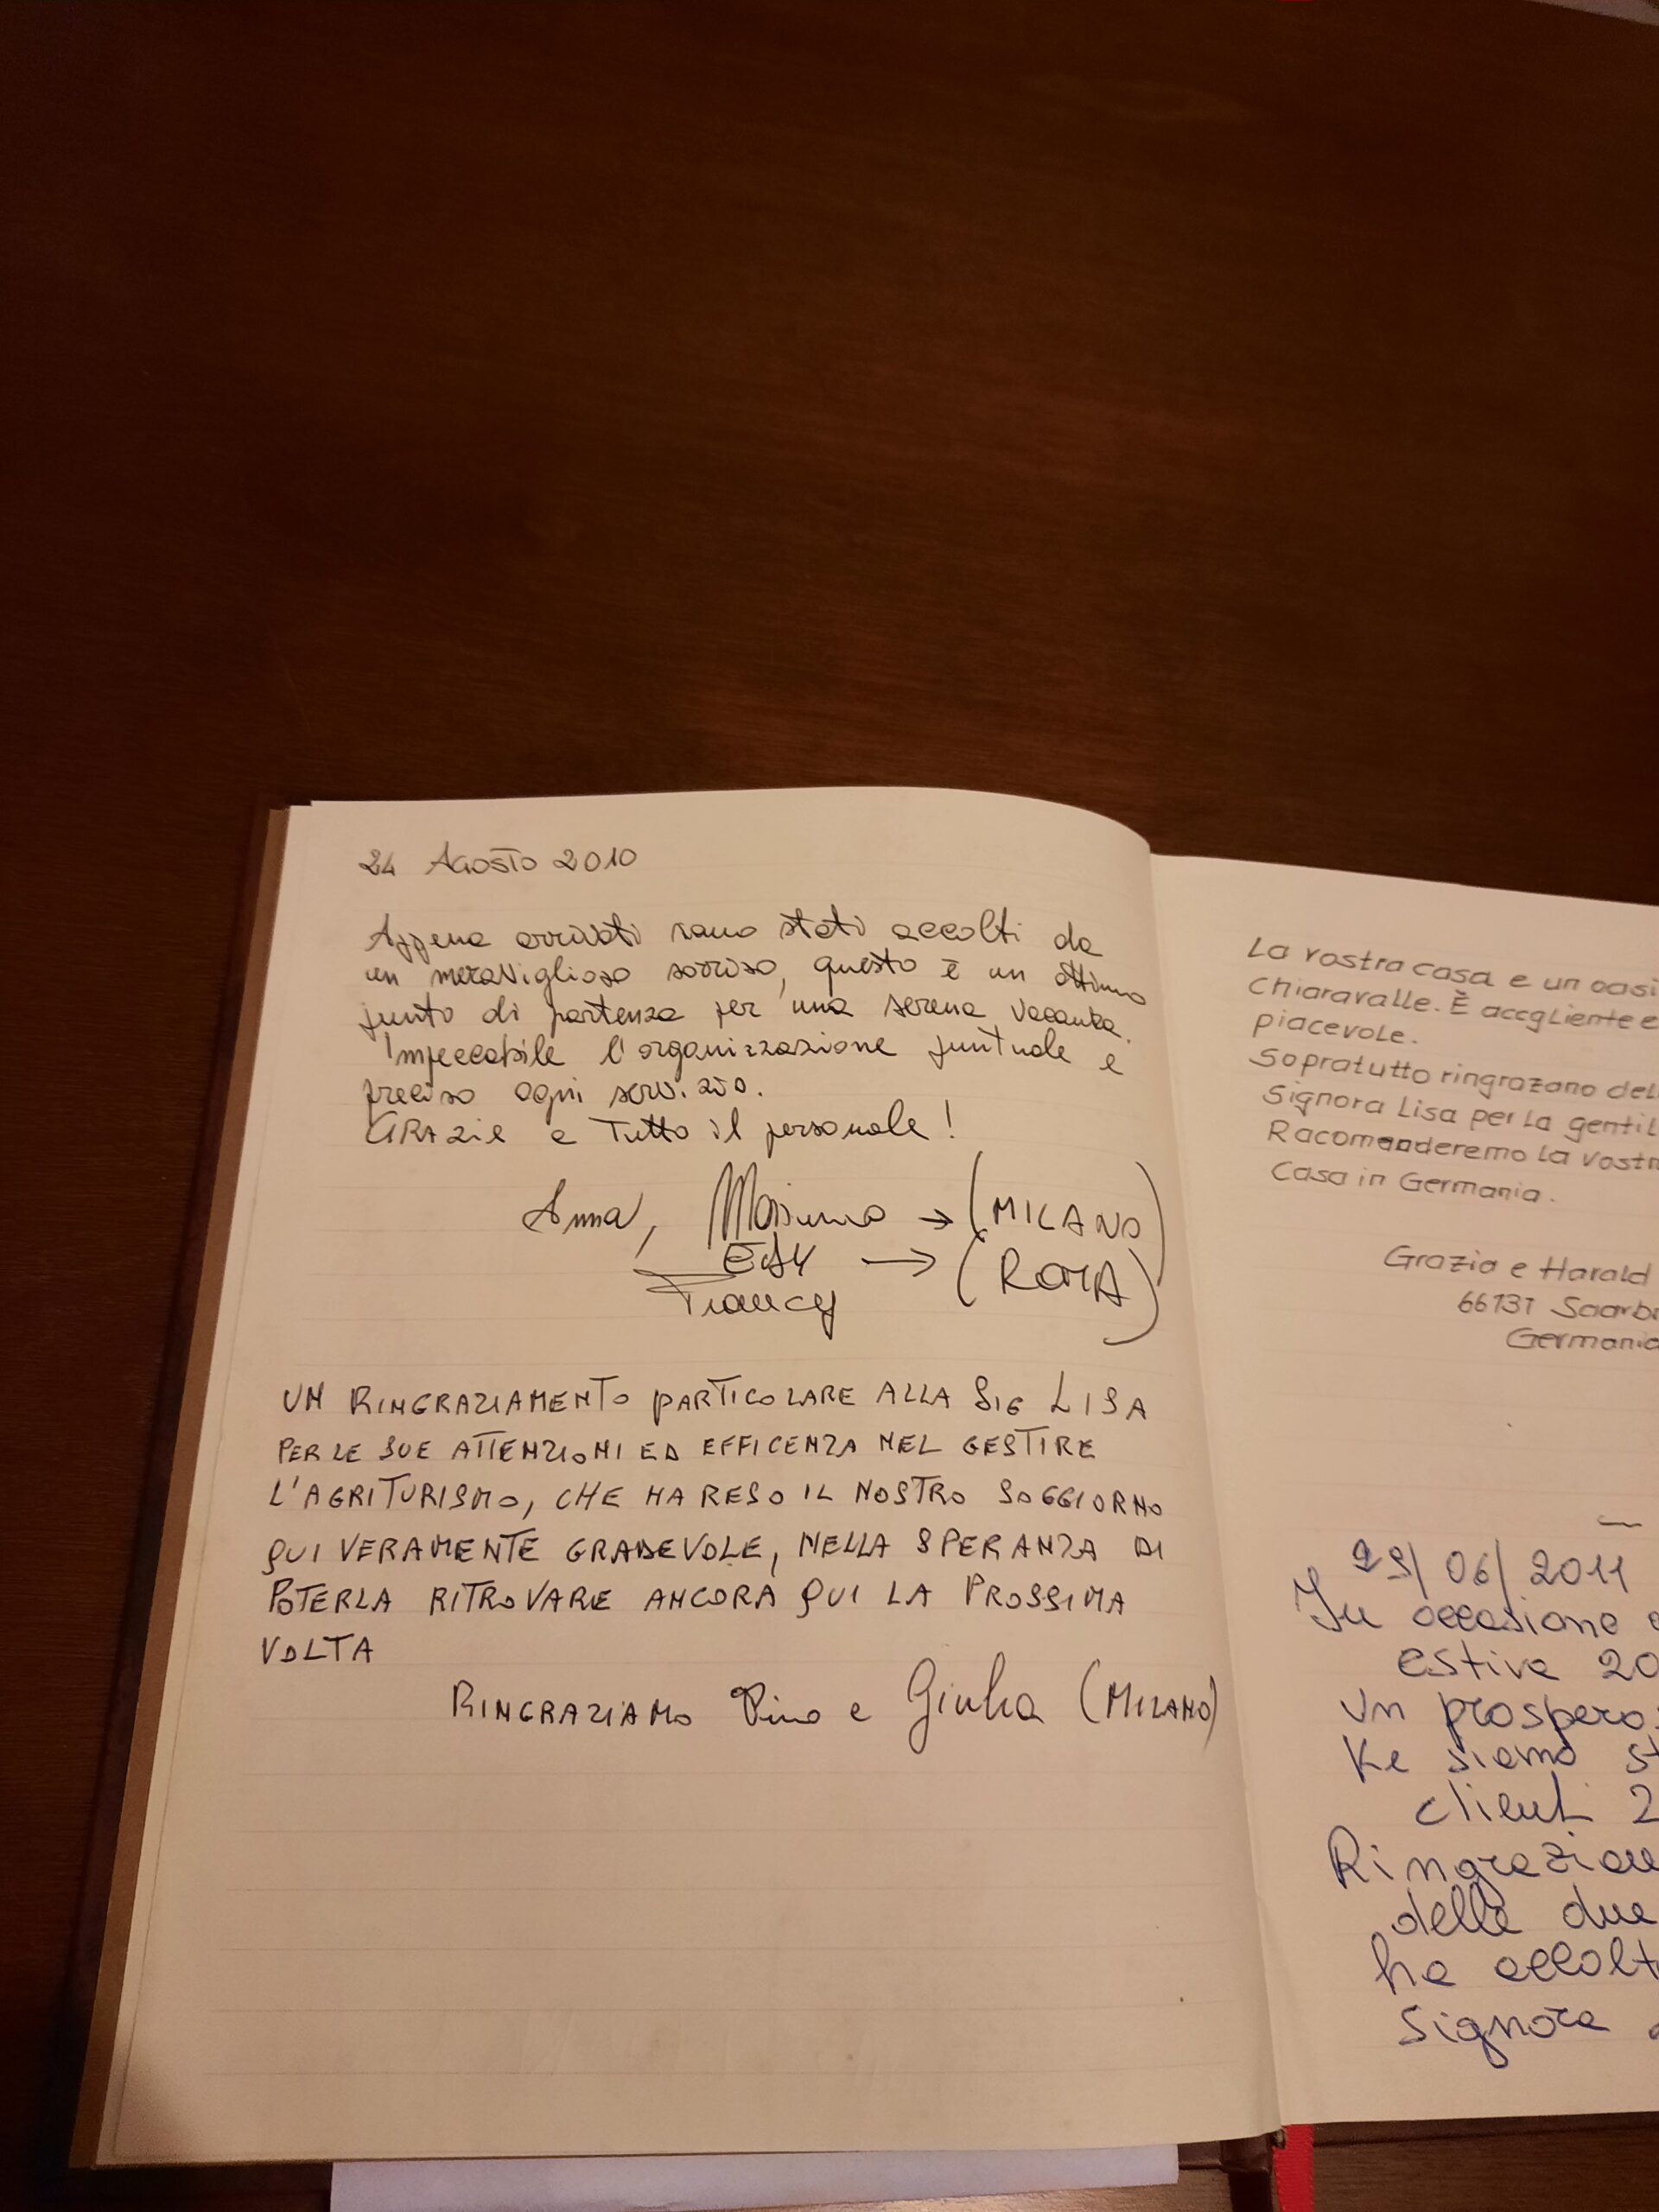 24 Agosto 2010
Appena arrivati siamo stati accolti da
un meraviglioso sorriso, questo è un ottimo
punto di partenza per una serena vacanza.
Impeccabile l'organizzazione puntuale e
preciso ogni servizio.
GRAZie a Tutto il personale!
Anna, Massimo → (MILANO)
→ (ROMA)
Francy
UN RINGRAZIAMENTO PARTICOLARE ALLA SIG LISA
PER LE SUE ATTENZIONI ED EFFICENZA NEL GESTIRE
L'AGRITURISMO, CHE HA RESO IL NOSTRO SOGGIORNO
QUI VERAMENTE GRADEVOLE, NELLA SPERANZA DI
POTERLA RITROVARE ANCORA QUI LA PROSSIMA
VOLTA
RINGRAZIAMO Pino e Giulia (MILANO)
La vostra casa e un oasi
Chiaravalle. È accgliente e
piacevole.
Sopratutto ringrazano del
Signora Lisa per la gentil
Racomanderemo la vostr
Casa in Germania.
Grazia e Harald
66131 Saarb
Germania
29/06/2011
In occasione
estiva 20
Un prospero
Ke siamo st
clienti 2
Ringraziam
delle due
ha accolt
Signora